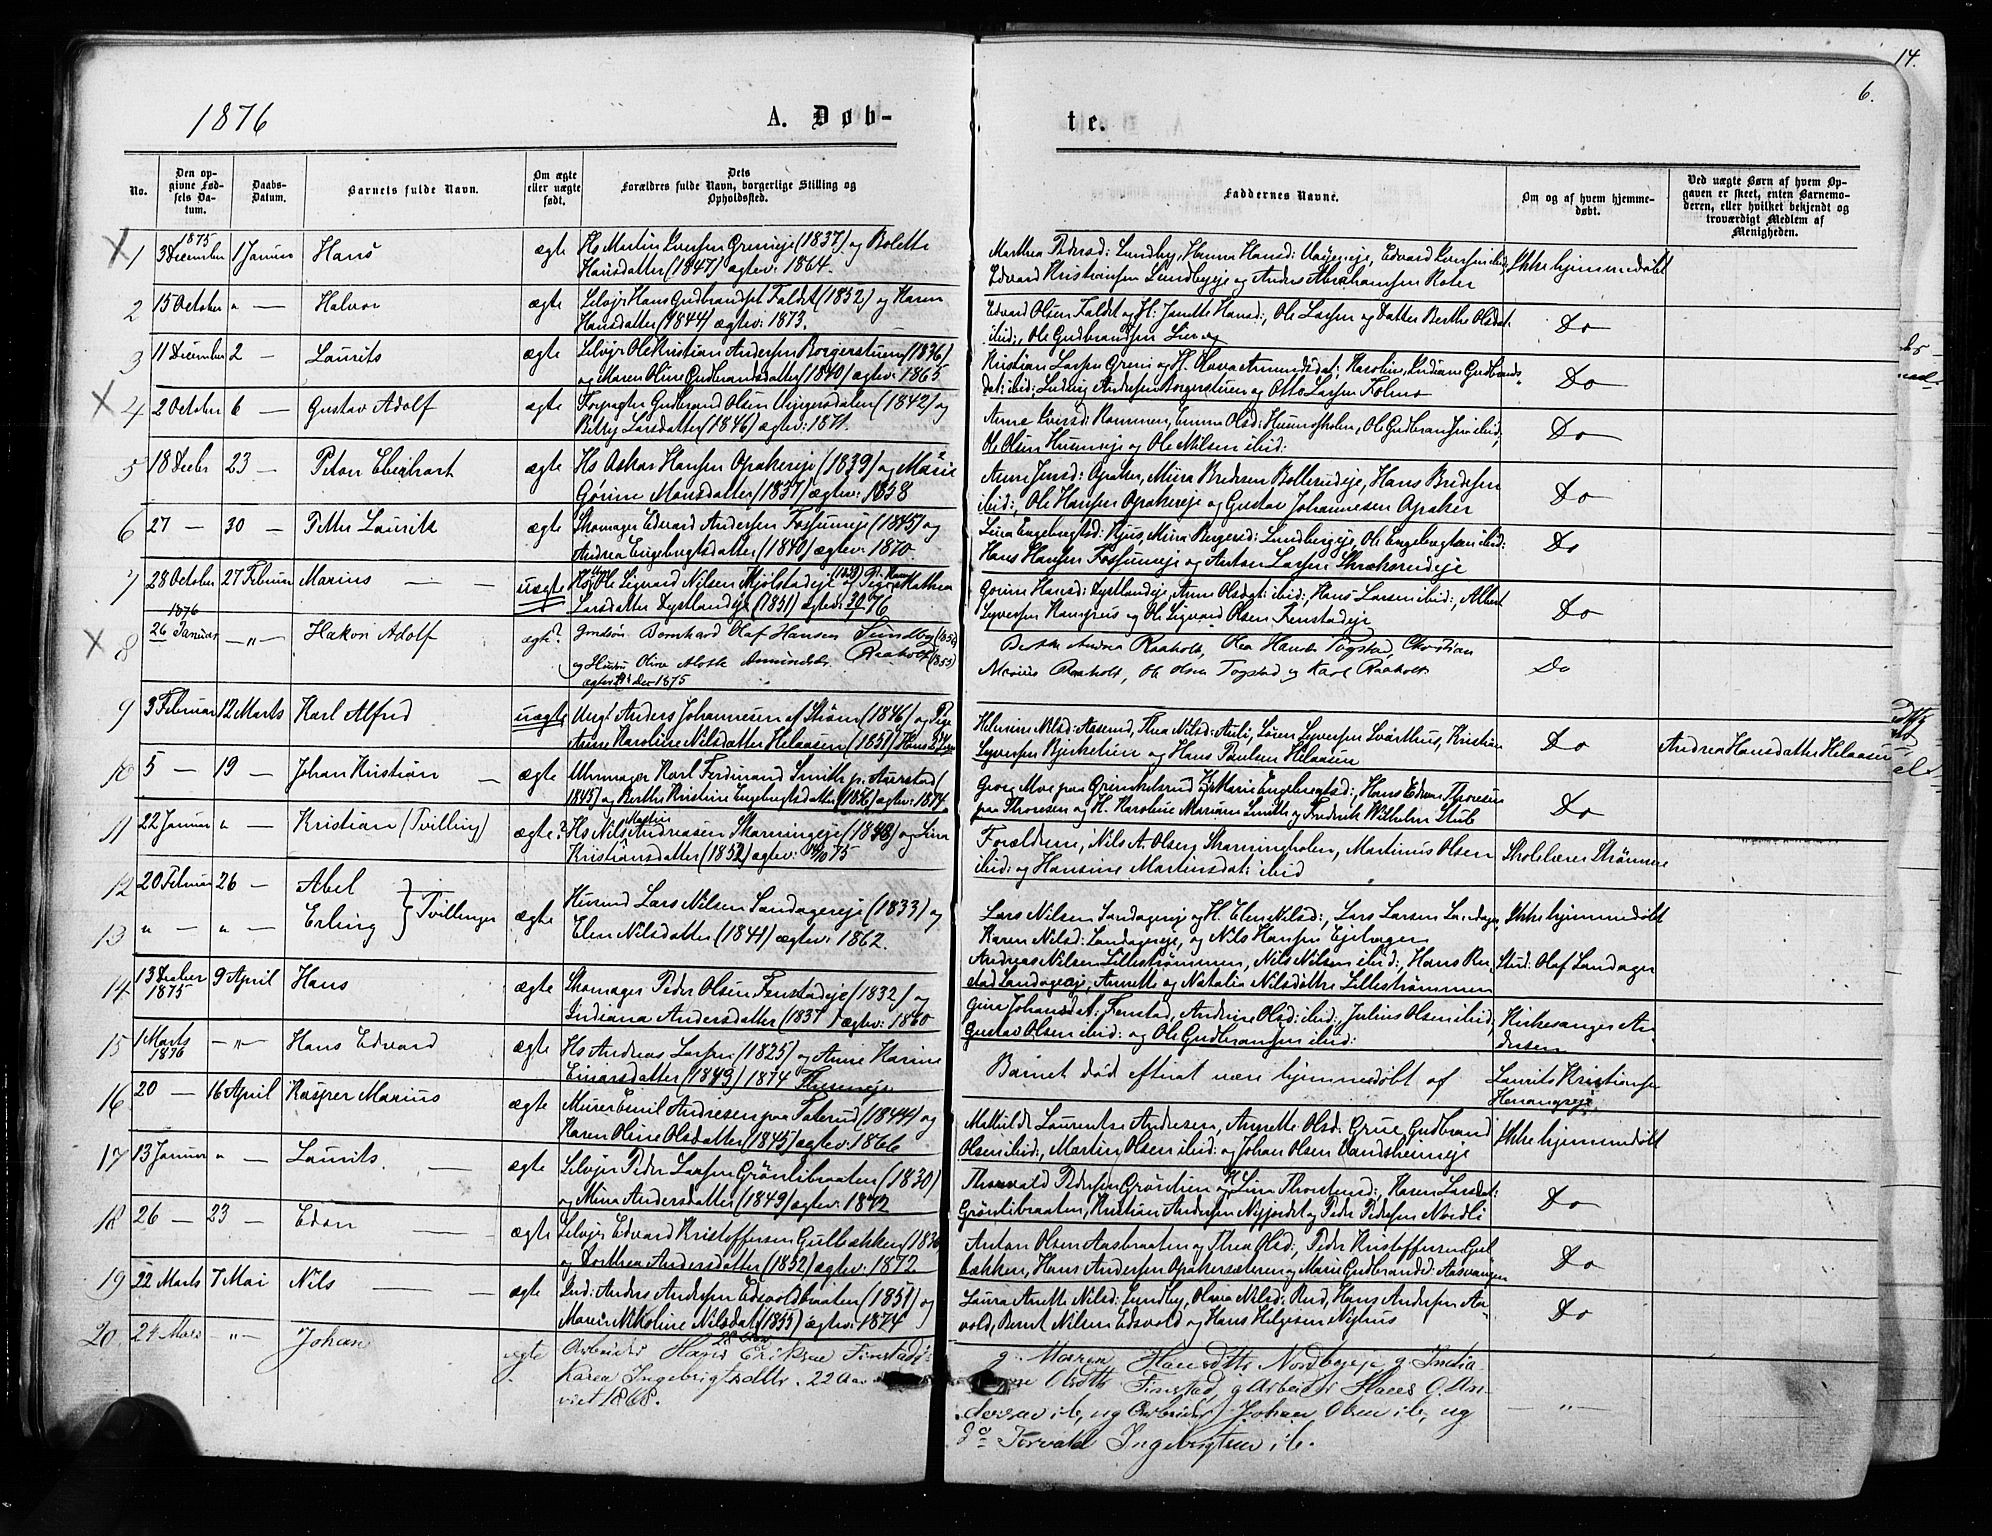 14.
6.
1876
A. Døb-
te.
No.
Den op-
givne Fød-
sels Da-
tum.
Daabs-
Datum.
Barnets fulde Navn.
Om ægte
eller uægte
født.
Dets
Forældres fulde Navn, borgerlige Stilling og
Opholdssted.
Faddernes Navne.
Om og af hvem hjemme-
døbt.
Ved uægte Børn af hvem Op-
gaven er skeet, enten Barnemo-
deren, eller hvilket bekjendt og
troværdigt Medlem af
Menigheden.
1 1875 3 December 1 Januar Hans ægte Hs Martin Iversen Grenieje (1837) og Bolette
Hansdatter (1847) ægtev: 1864.
Marthea Pedersd: Lundby, Hanna Hansd: Edvard Iversen ibid:
Edvard Kristiansen Lundbyeje og Anders Abrahamsen Roter
Ikke hjemmedøbt
2 15 October " — Halvor ægte Selvejr Hans Gudbrandsen Faldet (1852) og Karen
Hansdatter (1844) ægtev: 1873.
Edvard Olsen Faldet og H: Janette Hansd:, Ole Larsen og Datter Berthe Olsdat:
ibid:, Ole Gudbrandsen
Do
3 11 December 2 — Laurits ægte Selvejr Ole Kristian Andersen Borgerstuen (1836)
og Maren Oline Gudbrandsdatter (1840) ægtev: 1865
Kristian Larsen Greni og H. Amundsdat: Karoline, Indiane Gudbrands-
dat: ibid:, Ludvig Andersen Borgerstuen og Otto Larsen Holmo
Do
4 2 October 6 — Gustav Adolf ægte Forpagter Gudbrand Olsen Vingersdalen (1842) og
Betty Larsdatter (1846) ægtev: 1871.
Anne Iversd: Rammen, Emma Olsd: Ole Gudbransen ibid:,
Ole Olsen og Ole Nilsen ibid:
Do
5 18 Decbr 23 — Peter Eberhart ægte Hs Asker Hansen Opakereje (1839) og Marie
Gorine Monsdatter (1837) ægtev: 1858
Anne Jensd: Opaker, Mina Bredesen Bollerudeje, Hans Bredesen
ibid:, Ole Hansen Opakereje og Gustav Johannesen Opaker
Do
6 27 — 30 — Petter Laurits ægte Skomager Edvard Andersen Fossumeje (1845) og
Andrea Engebregtsdatter (1840) ægtev: 1870.
Lina Engebregtsd: Hjus, Mina Bergersd: Lundbyeje, Ole Engebregtsen ibid:
Hans Hansen Fossumeje og Anton Larsen
Do
7 28 October 27 Februar Marius uægte Ole Sigvard Nilsen Mjølstadeje og Pige Mathea
Larsdatter Dystlandeje (1851)
Gorine Hansd: Dystlandeje, Anne Olsdat: ibid:, Hans Larsen ibid:, Albert
Syversen og Ole Sigvard Olsen Fenstadeje
Do
8 1876 26 Januar — " — Hakon Adolf ægte? Bernhard Olaf Hansen Sundby
og Hustru Oline Alette Amundsdtr Raaholt
ægtev: Dec 1875
Berthe Andrea Raaholt, Olea Hansdtr Togstad, Christian
Marius Raaholt, Ole Olsen Togstad og Karl Raaholt
Do
9 3 Februar 12 Marts Karl Alfred uægte Ungk Anders Johannesen af Strøm (1846) og Pige
Anne Karoline Nilsdatter Helaasen (1851)
Helmine Nilsd: Aaserud, Thea Nilsd: Auli, Søren Syversen Svarthus, Kristian
Syversen Bjerketun og Hans Paulsen Helaasen
Do
Andrea Hansdatter Helaasen
10 5 — 19 — Johan Kristian — ægte Uhrmager Karl Ferdinand Smith p. Aurstad (
1845) og Berthe Kristine Engebregtsdatter (1856) ægtev: 1874
Georg Moe paa Grinkelsrud H. Marie Engebregtsd:, Hans Edvan Thoresen
paa Thoresen og H. Karoline Mariane Smith og Frederik Wilhelm Stub
Do
11 22 Januar " — Kristian (Tvilling) ægte? Hs Nils Martin Andreasen Skarningeje (1848) og Lina
Kristiansdatter (1852) ægtev: 75
Forældrene, Nils A. Olsen Skarningholen, Martinus Olsen
ibid: og Hansine Martinsdat: ibid
Skolelærer Strømme
12 20 Februar 26 — Abel
13 " — " — Erling } Tvillinger ægte Husmd Lars Nilsen Landagereje (1833) og
Elen Nilsdatter (1841) ægtev: 1862.
Lars Nilsen Landagereje og H. Elen Nilsd:, Lars Larsen Landager,
Karen Nilsd: Landagereje, og Nils Hansen Ejelvager
Ikke hjemmedøbt
Andreas Nilsen Lillestrømmen, Nils Nilsen ibid:, Hans Re-
stad Landagereje, Annette og Natalia Nilsdøttre Lillestrømmen
Stud: Olaf Landager
14 13 Decbr 1875 9 April Hans ægte Skomager Peder Olsen Fenstadeje (1832) og
Indiana Andersdatter (1837 ægtev: 1860
Gina Johansdat: Fenstad, Andrine Olsd: ibid:, Julius Olsen ibid:,
Gustav Olsen ibid: og Ole Gudbransen ibid:
Kirkesanger An-
dresen
15 1 Marts 1876 — " — Hans Edvard ægte Hs Andreas Larsen (1825) og Anne Karine
Einarsdatter (1849) 1874
Barnet død efterat være hjemmedøbt af
Laurits Kristiansen
16 20 — 16 April Kasper Marius ægte Murer Emil Andresen paa Faterud (1844) og
Karen Oline Olsdatter (1845) ægtev: 1866
Mathilde Laurentse Andresen, Annette Olsd: Grue, Gudbrand
Olsen ibid:, Martin Olsen ibid: og Johan Olsen
Ikke hjemmedøbt
17 13 Januar " — Laurits — ægte Selvejr Peder Larsen Grønlibraaten (1830)
og Mina Andersdatter (1849) ægtev: 1872
Thorvald Pedersen og H. Lina Thorstensd:, Karen Larsdat:
Grønlibraaten, Kristian Andersen og Peder Pedersen Nordli
Do
18 26 — 23 — Edon — ægte Selvejr Edvard Kristoffersen Gulbækken (1836
og Dorthea Andersdatter (1852) ægtev: 1872
Anton Olsen Aasbraaten og Thea Olsd:, Peder Kristoffersen Gul-
bækken, Hans Andersen Opakersæteren og Marie Gudbrandsd: Aasvangen
Do
19 22 Marts 7 Mai Nils — ægte Ind: Anders Andersen Edsvoldbraaten (1851) og
Maria Nikoline Nilsdat: (1855) ægtev: 1874
Laura Anette Nilsd: Lundby, Olivia Nilsd: Rud, Hans Andersen Aa-
vold, Bernt Nilsen Edsvold og Hans Helgesen Nyhus
Do
20. 24 Mars — " — Johan ægte Arbeider Hans Eriksen Finstad
Karen Ingebrigtsdttr. 22 Aar
viet 1868.
g. Maren Hansdttr Nordbyeje, g. India-
ne Olsdttr Finstad, g Arbeider Hans O. An-
dersen ib, og Arbeider Johan Olsen ib, og
do Torvald Ingebrigtsen ib.
— " —